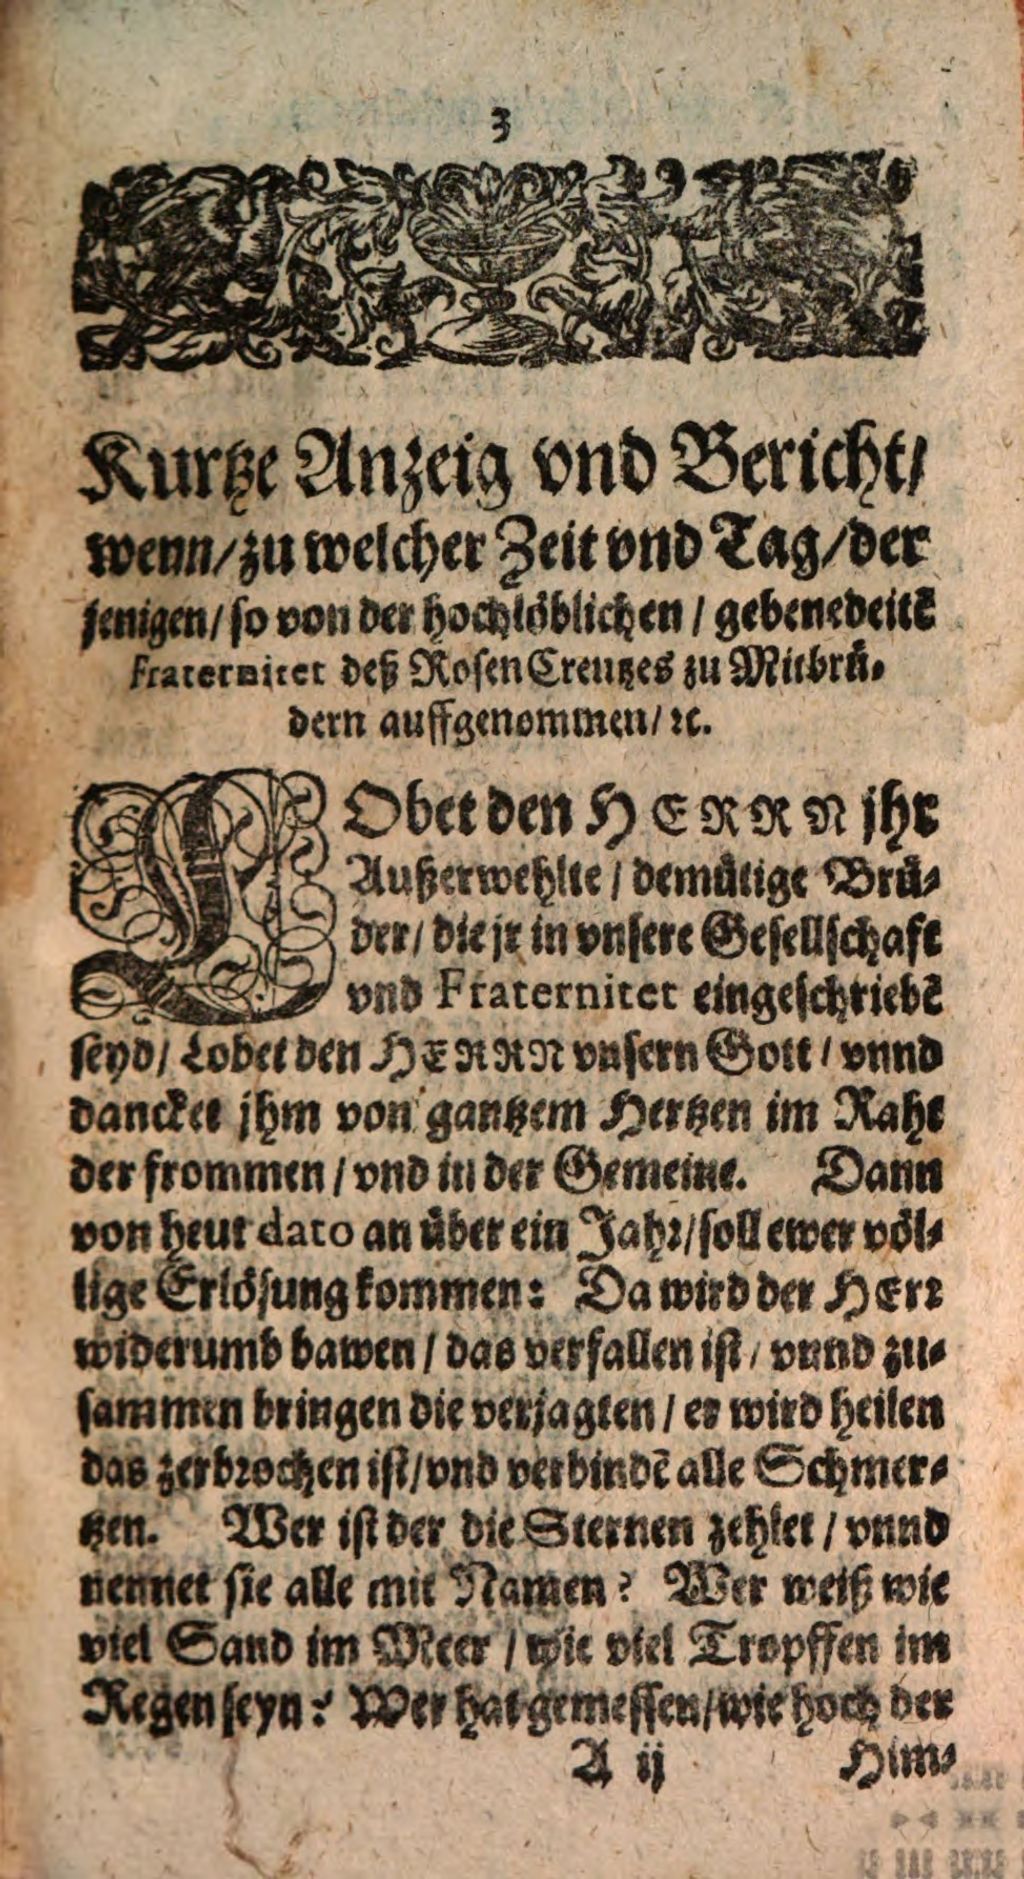 3
Kurtze Anzeig vnd Bericht/
wenn/ zu welcher Zeit vnd Tag/ der
jenigen/ so von der hochlöblichen / gebenedeitē
Fraternitet deß Rosen Creutzes zu Mitbrü⸗
dern auffgenommen/ ꝛc.
LObet den HERRN jhr
Außerwehlte / demütige Brü⸗
der/ die jr in vnsere Gesellschaft
vnd Fraternitet eingeschriebē
seyd/ Lobet den HERRN vnsern Gott / vnnd
dancket jhm von gantzem Hertzen im Raht
der frommen / vnd in der Gemeine. Dann
von heut dato an über ein Jahr/ soll ewer völ⸗
lige Erlösung kommen: Da wird der HErr
widerumb bawen / das verfallen ist / vnnd zu⸗
sammen bringen die verjagten / er wird heilen
das zerbrochen ist/ vnd verbindē alle Schmer⸗
tzen. Wer ist der die Sternen zehlet / vnnd
nennet sie alle mit Namen? Wer weiß wie
viel Sand im Meer / wie viel Tropffen im
Regen seyn? Wer hat gemessen/ wie hoch der
A ij Him⸗